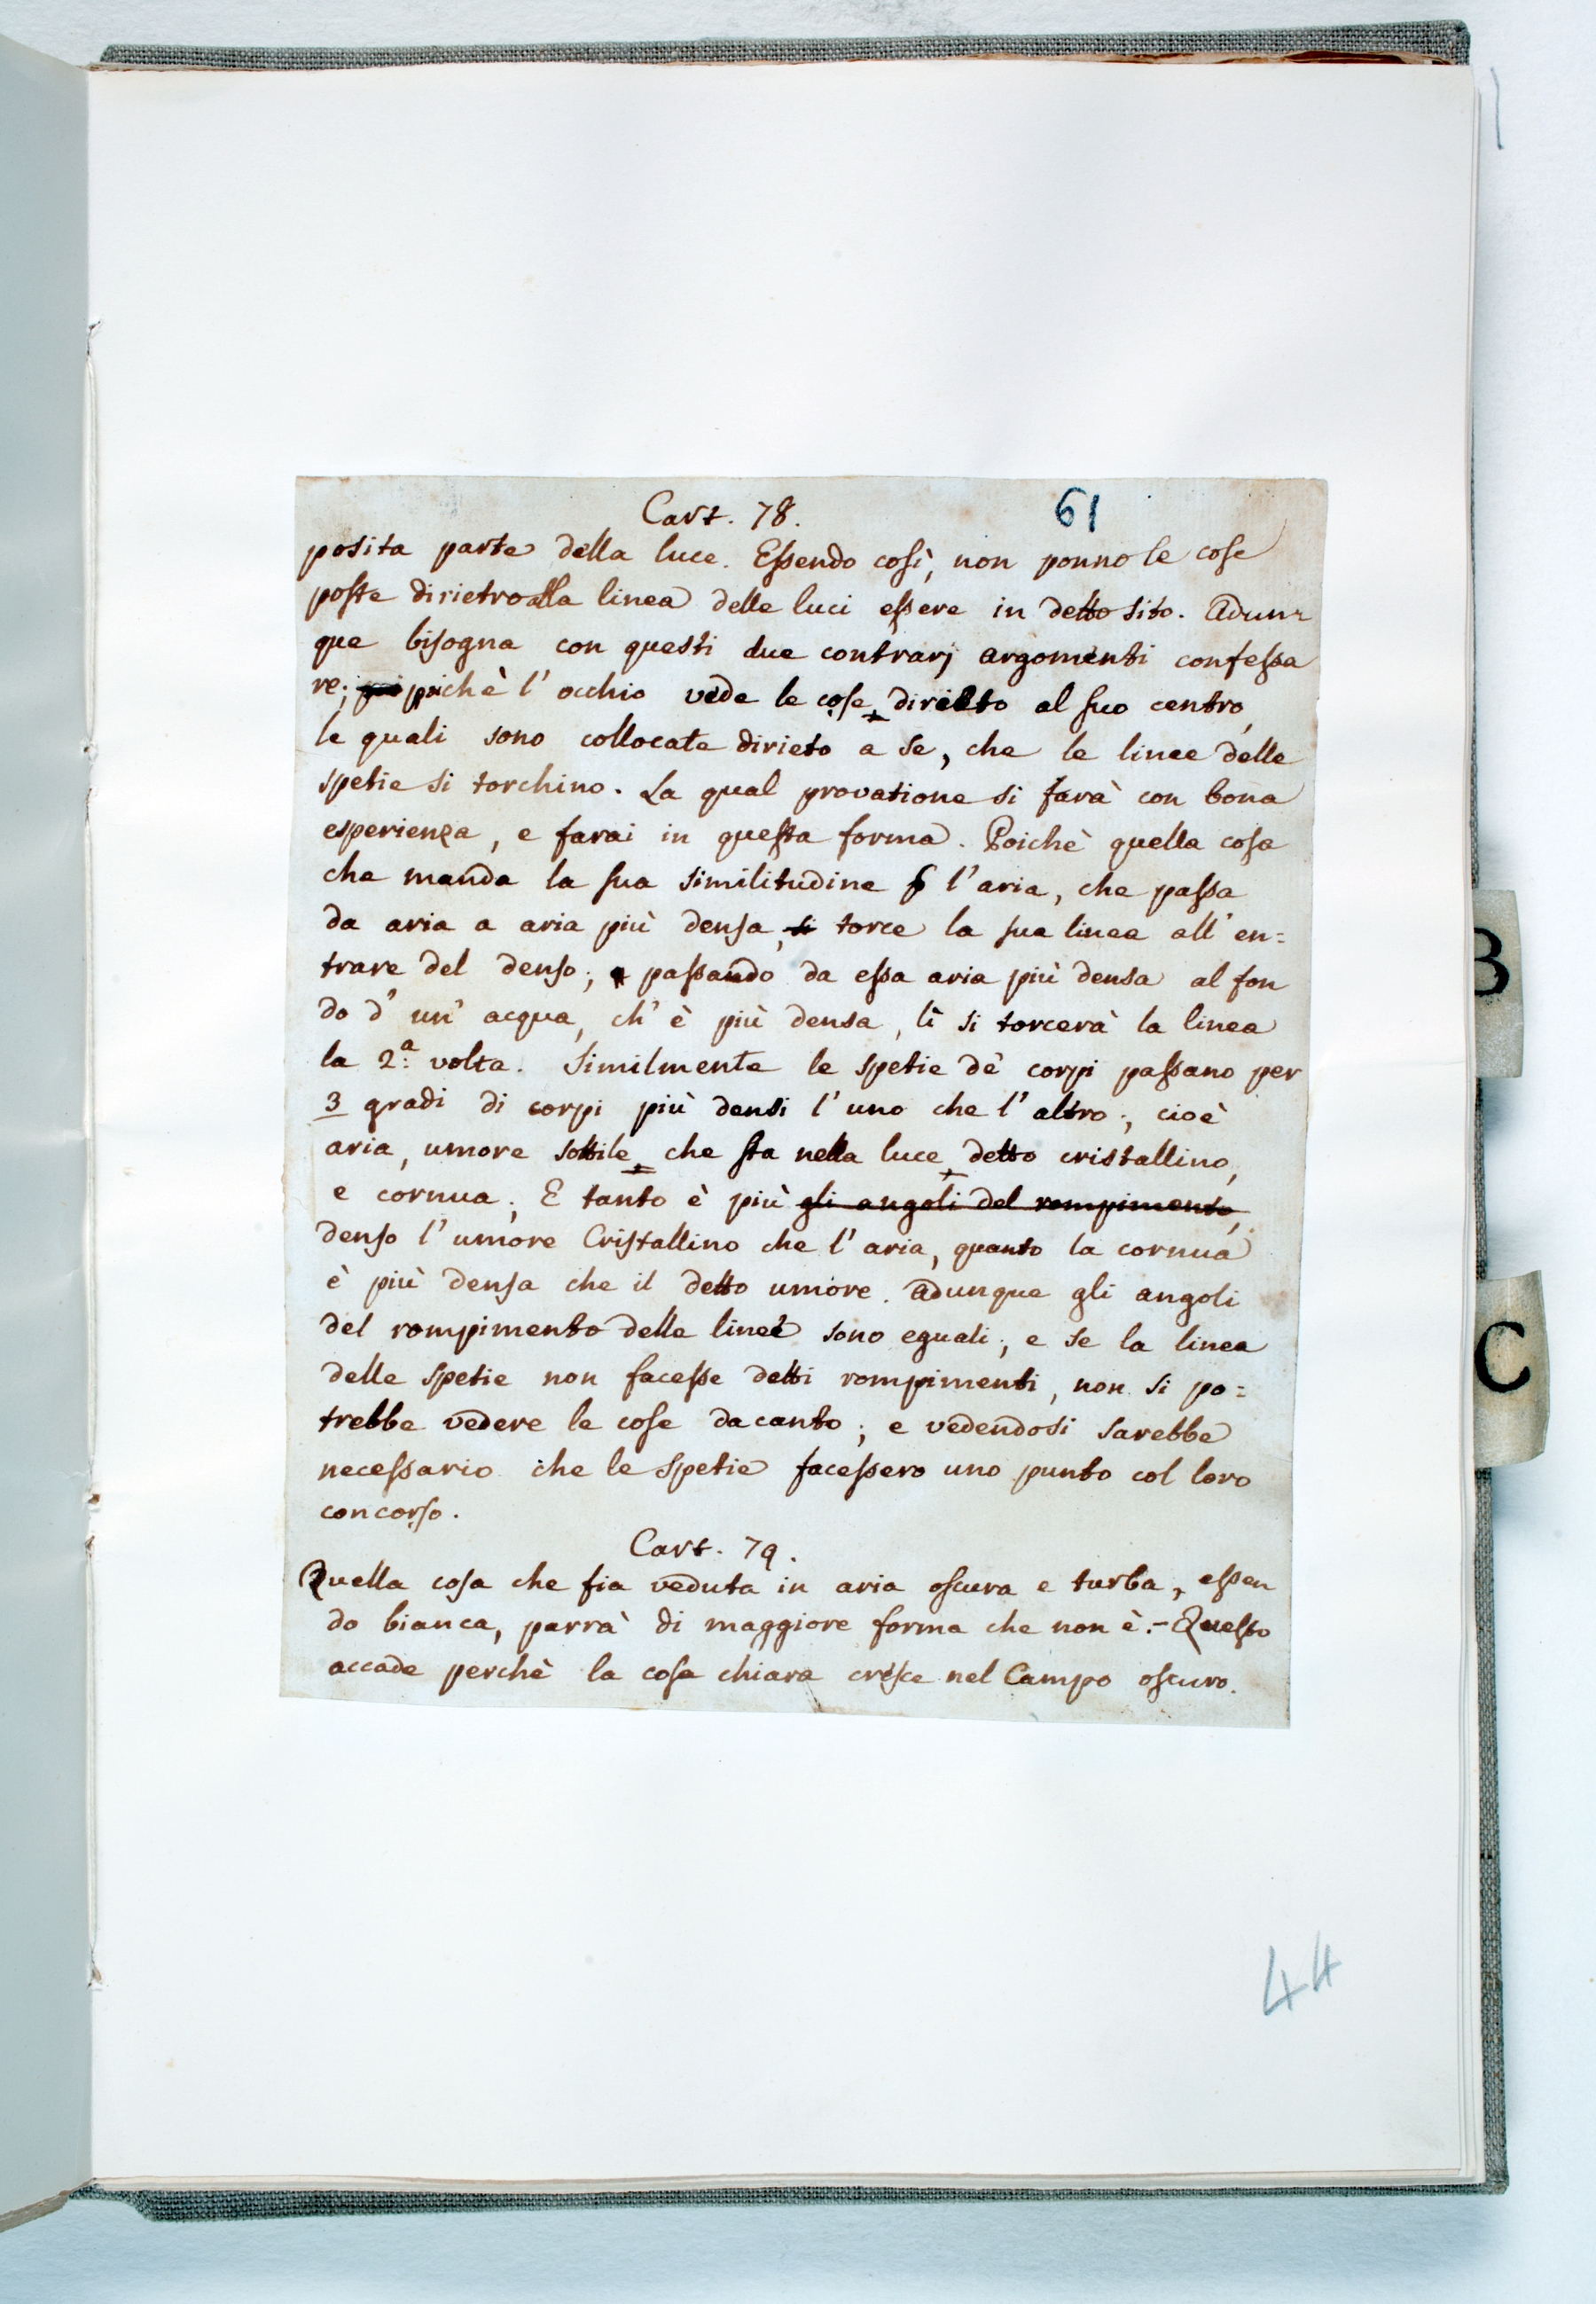 Cart. 78. 61
posita parte della luce. Essendo così, non ponno le cose
poste dirietro alla linea delle luci essere in detto sito. Adun=
que bisogna con questi due contrarj argomenti confessa
re; poichè l' occhio vede le cose, dirietto al suo centro,
le quali sono collocate dirieto a se, che le linee delle
spetie si torchino. La qual provatione si farà con bona
esperienza, e farai in questa forma. Poichè quella cosa
che manda la sua similitudine l'aria, che passa
da aria a aria più densa, si torce la sua linea all' en=
trare del denso; passando da essa aria più densa al fon
do d' un' acqua, ch' è più densa, lì si torcerà la linea
la 2.a volta. Similmente le spetie de' corpi passano per
3 gradi di corpi più densi l' uno che l' altro; cioè
aria, umore sottile, che sta nella luce, detto cristallino,
e cornua; E tanto è più gli angoli del rompimento,
denso l' umore Cristallino che l' aria, quanto la cornua
è più densa che il detto umore. Adunque gli angoli
del rompimento delle linee sono eguali; e se la linea
delle spetie non facesse detti rompimenti, non si po=
trebbe vedere le cose dacanto; e vedendosi sarebbe
necessario che le spetie facessero uno punto col loro
concorso.
Cart. 79.
Quella cosa che fia veduta in aria oscura e turba, essen
do bianca, parrà di maggiore forma che non è.- Questo
accade perchè la cosa chiara cresce nel Campo oscuro.
B
C
44